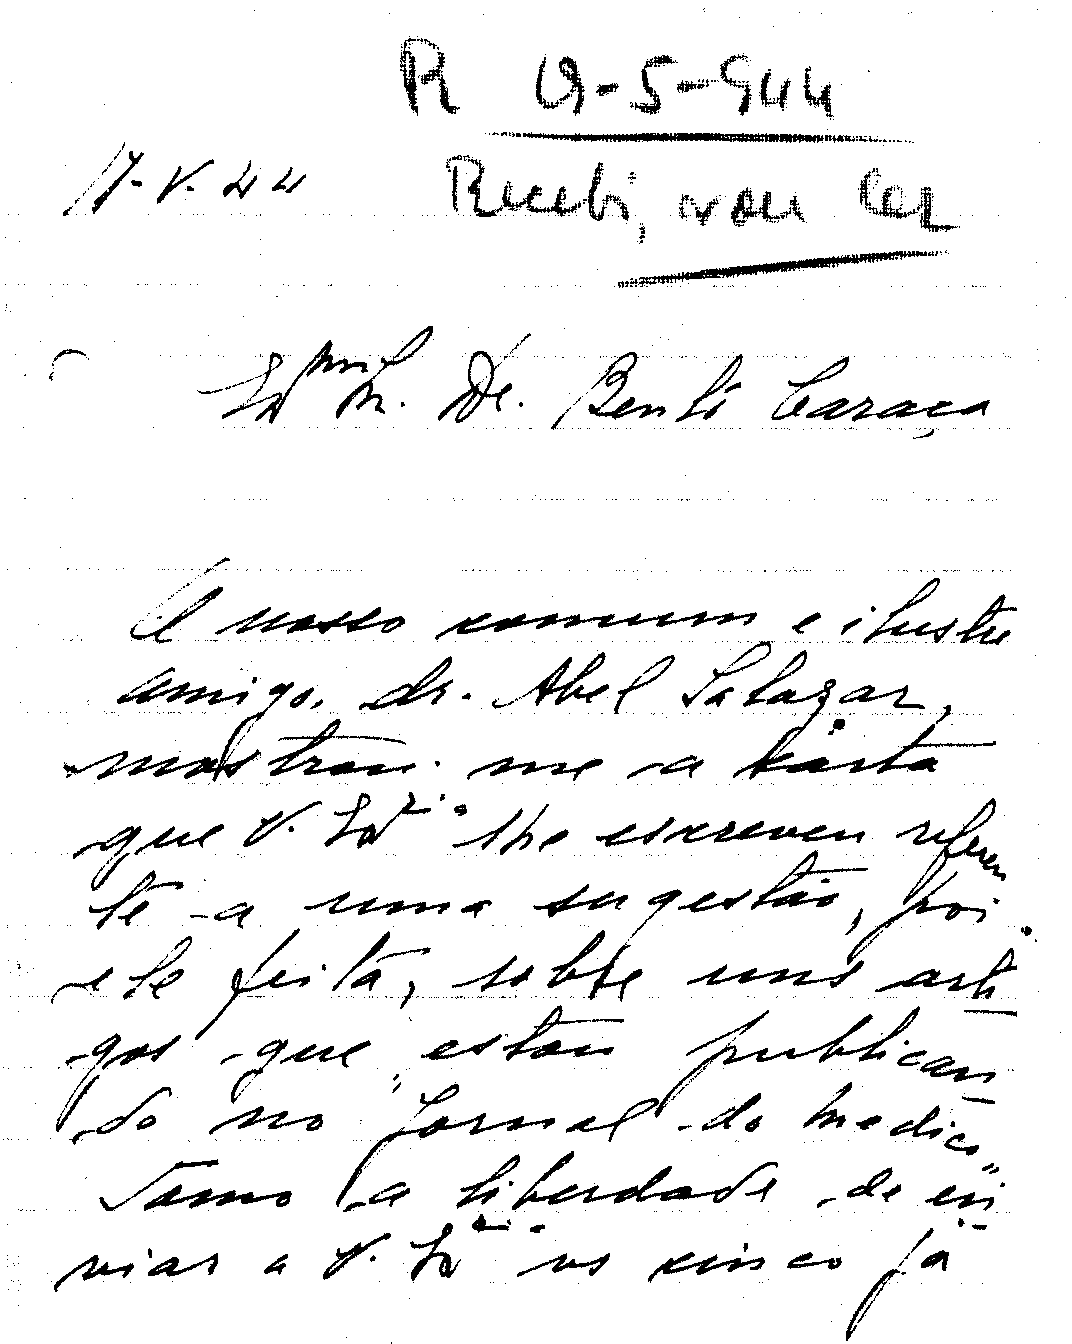 R 19-5-944
17-V-44
Recebi, vou ler
Exmo Sr. Dr. Bento Caraça
O nosso comum e ilustre
amigo, dr. Abel Salazar,
mostrou-me a carta
que V. Exª lhe escreveu referen
te a uma sugestão, por
ele feita, sobre uns arti
gos que estou publican
do no "Jornal do Medico"
Tomo a liberdade de en
viar a V. Exª os cinco já